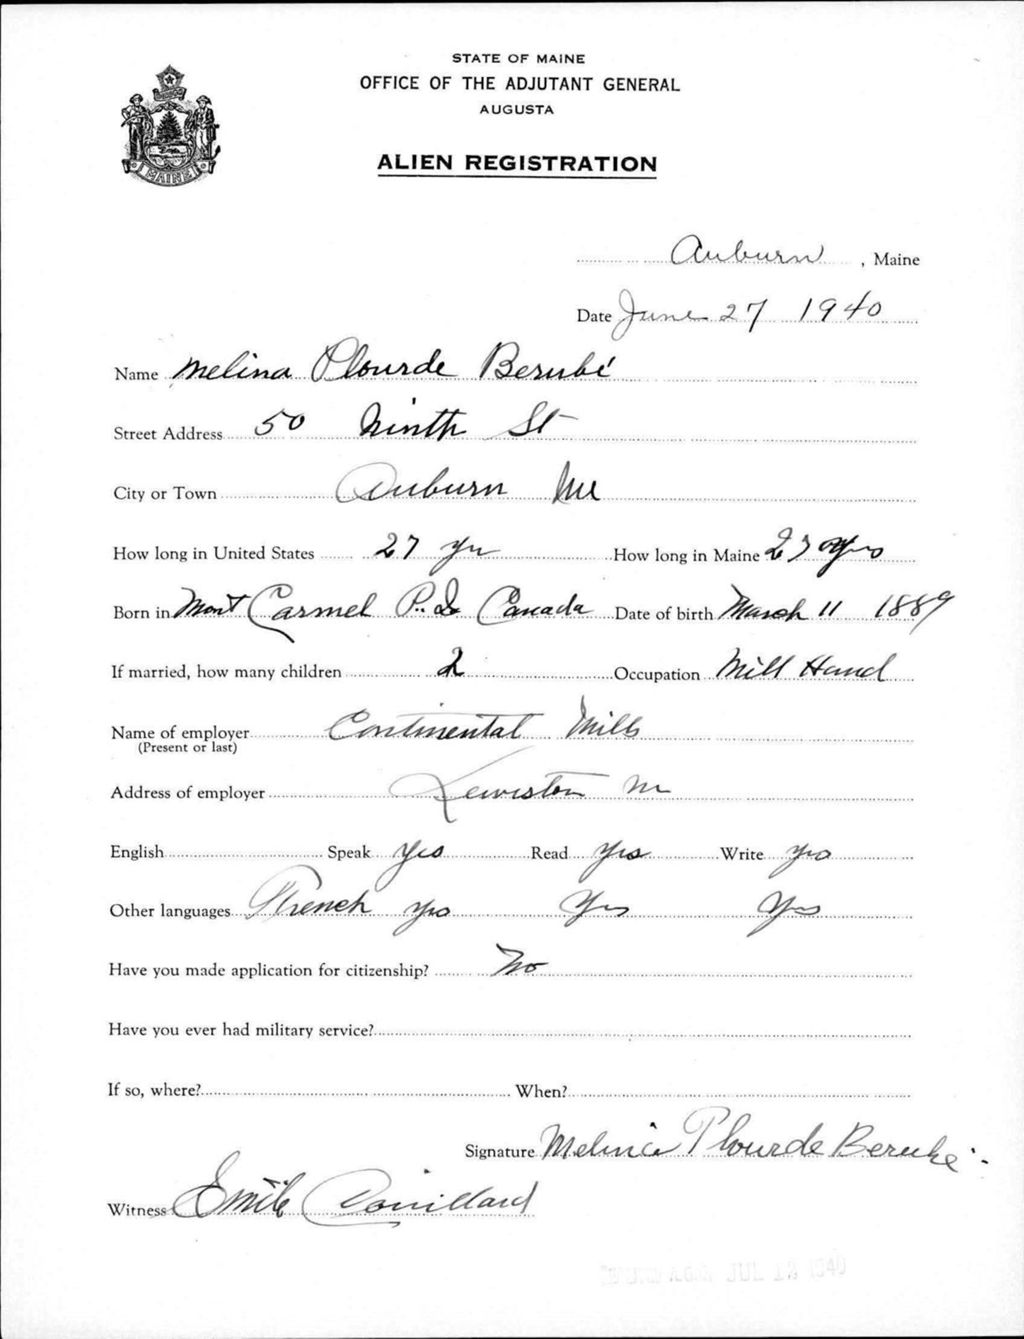 STATE OF MAINE
OFFICE OF THE ADJUTANT GENERAL
AUGUSTA
ALIEN REGISTRATION
MAINE
Auburn, Maine
Date June 27 1940
Name Melina Plourde Berubé
Street Address 50 Ninth St
City or Town Auburn Me
How long in United States 27 yrs How long in Maine 27 yrs
Born in Mont Carmel P.Q. Canada Date of birth March 11 1889
If married, how many children 2 Occupation Mill Hand
Name of employer Continental Mills
(Present or last)
Address of employer Lewiston Me
English Speak yes Read yes Write yes
Other languages French yes yes yes
Have you made application for citizenship? No
Have you ever had military service?
If so, where? When?
Signature Melina Plourde Berube
Witness Emile Couillard
A.G.O. JUL 1940